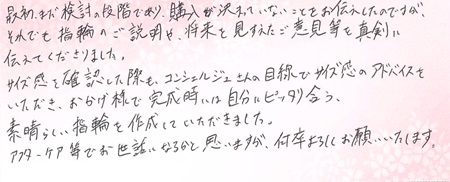 最初、まだ検討の段階であり、購入が決まっていないことをお伝えしたのですが、
それでも指輪のご説明や、将来を見すえたご意見等を真剣に
伝えてくださりました。
サイズ感を確認した際も、コンシェルジュさんの目線でサイズ感のアドバイスを
いただき、おかげ様で完成時には自分にピッタリ合う、
素晴らしい指輪を作成していただきました。
アフターケア等でお世話になるかと思いますが、何卒よろしくお願いいたします。